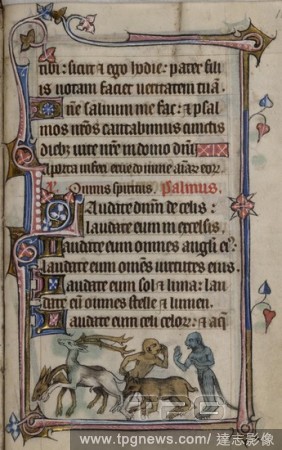 tibi: sicut et ego hodie: pater filii
is notam faciet veritatem tuam.
Dñe salvum me fac: et psal
mos nr̃os cantabimus cunctis
dieb; vite nr̃e in domo dñi.
A porta inferi erue domine aĩas eor̃
Omnis spiritus. Psalmus.
Laudate dñm de celis:
laudate eum in excelsis.
Laudate eum omnes angl̃i ei9:
laudate eum om̃es virtutes eius.
Laudate eum sol & luna: lau
date eũ omnes stelle & lumen.
Laudate eum celi celor̃: & aq̃
www.tpgnews.com/達志影像